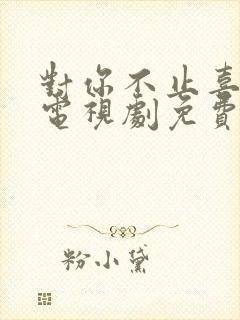 對你不止喜
電視劇免費
粉小黛